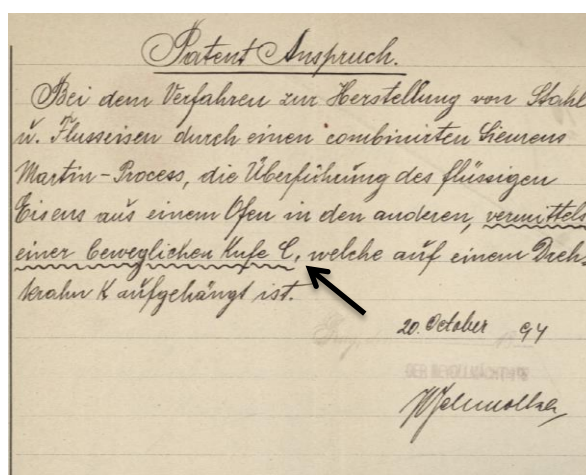 Patent Anspruch.
Bei dem Verfahren zur Herstellung von Stahl
u. Flusseisen durch einen combinirten Siemens
Martin-Process, die Überführung des flüssigen
Eisens aus einem Ofen in den anderen, vermittels
einer beweglichen Kufe C, welche auf einem Dreh-
krahn K aufgehängt ist.
20. October 94
DER BEVOLLMÄCHTIGTE